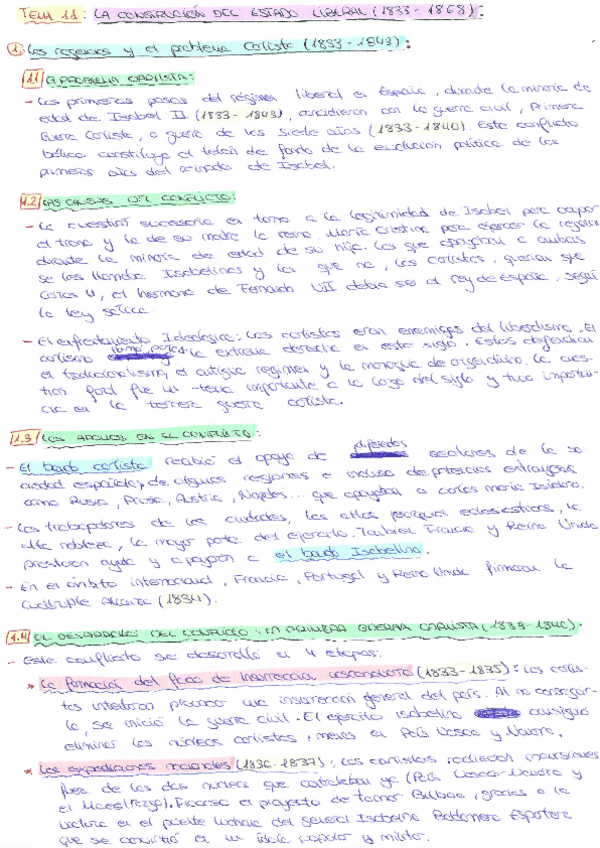 TEMA 11: LA CONSTRUCCIÓN DEL ESTADO LIBERAL (1833-1868):
1. Las regencias y el problema Carlista (1833-1843):
1.1 EL PROBLEMA CARLISTA:
- Los primeros pasos del régimen liberal en España, durante la minoría de
edad de Isabel II (1833-1843), coincidieron con la guerra civil, Primera
Guerra Carlista, o guerra de los siete años (1833-1840). Este conflicto
bélico constituye el telón de fondo de la evolución política de los
primeros años del reinado de Isabel.
1.2 LAS CAUSAS DEL CONFLICTO:
- La cuestión sucesoria en torno a la legitimidad de Isabel para ocupar
el trono y la de su madre la reina María Cristina para ejercer la regencia
durante la minoría de edad de su hija. Los que apoyaban a ambas
se les llamaba Isabelinos y los que no, los carlistas, querían que
Carlos, el hermano de Fernando VII debía ser el rey de España, según
la ley sálica
- El enfrentamiento Ideológico: Los carlistas eran enemigos del liberalismo. El
carlismo la extrema derecha en este siglo. Estos defendían
el tradicionalismo, el antiguo régimen y la monarquía de origen divino. La cues-
tión foral fue un tema importante a lo largo del siglo y tuvo importan-
cia en la tercera guerra carlista.
1.3 LOS APOYOS EN EL CONFLICTO:
- El bando carlista recibió el apoyo de diferentes sectores de la so-
ciedad española, de algunas regiones e incluso de potencias extranjeras
como Rusia, Prusia, Austria, Nápoles... que apoyaban a Carlos María Isidro.
- Los trabajadores de las ciudades, las altas jerarquías eclesiásticas, la
alta nobleza, la mayor parte del ejército. También Francia y Reino Unido
prestaron ayuda y apoyaron a el bando Isabelino.
- En el ámbito internacional, Francia, Portugal y Reino Unido firmaron la
Cuádruple Alianza (1834).
1.4 EL DESARROLLO DEL CONFLICTO: LA PRIMERA GUERRA CARLISTA (1833-1840).
- Este conflicto se desarrolló en 4 etapas:
* La formación del foco de insurrección (1833-1835): Los carlis-
tas intentaron provocar una insurrección general del país. Al no conseguir-
lo, se inició la guerra civil. El ejército isabelino consiguió
eliminar los núcleos carlistas, menos en País Vasco y Navarra.
* Las expediciones nacionales (1836-1837): Los carlistas realizaron incursiones
fuera de los dos núcleos que controlaban ya (País Vasco-Navarra y
el Maestrazgo). Fracasó el proyecto de tomar Bilbao, gracias a la
victoria en el puente Luchana del general Isabelino Baldomero Espartero
que se convirtió en un ídolo popular y militar.